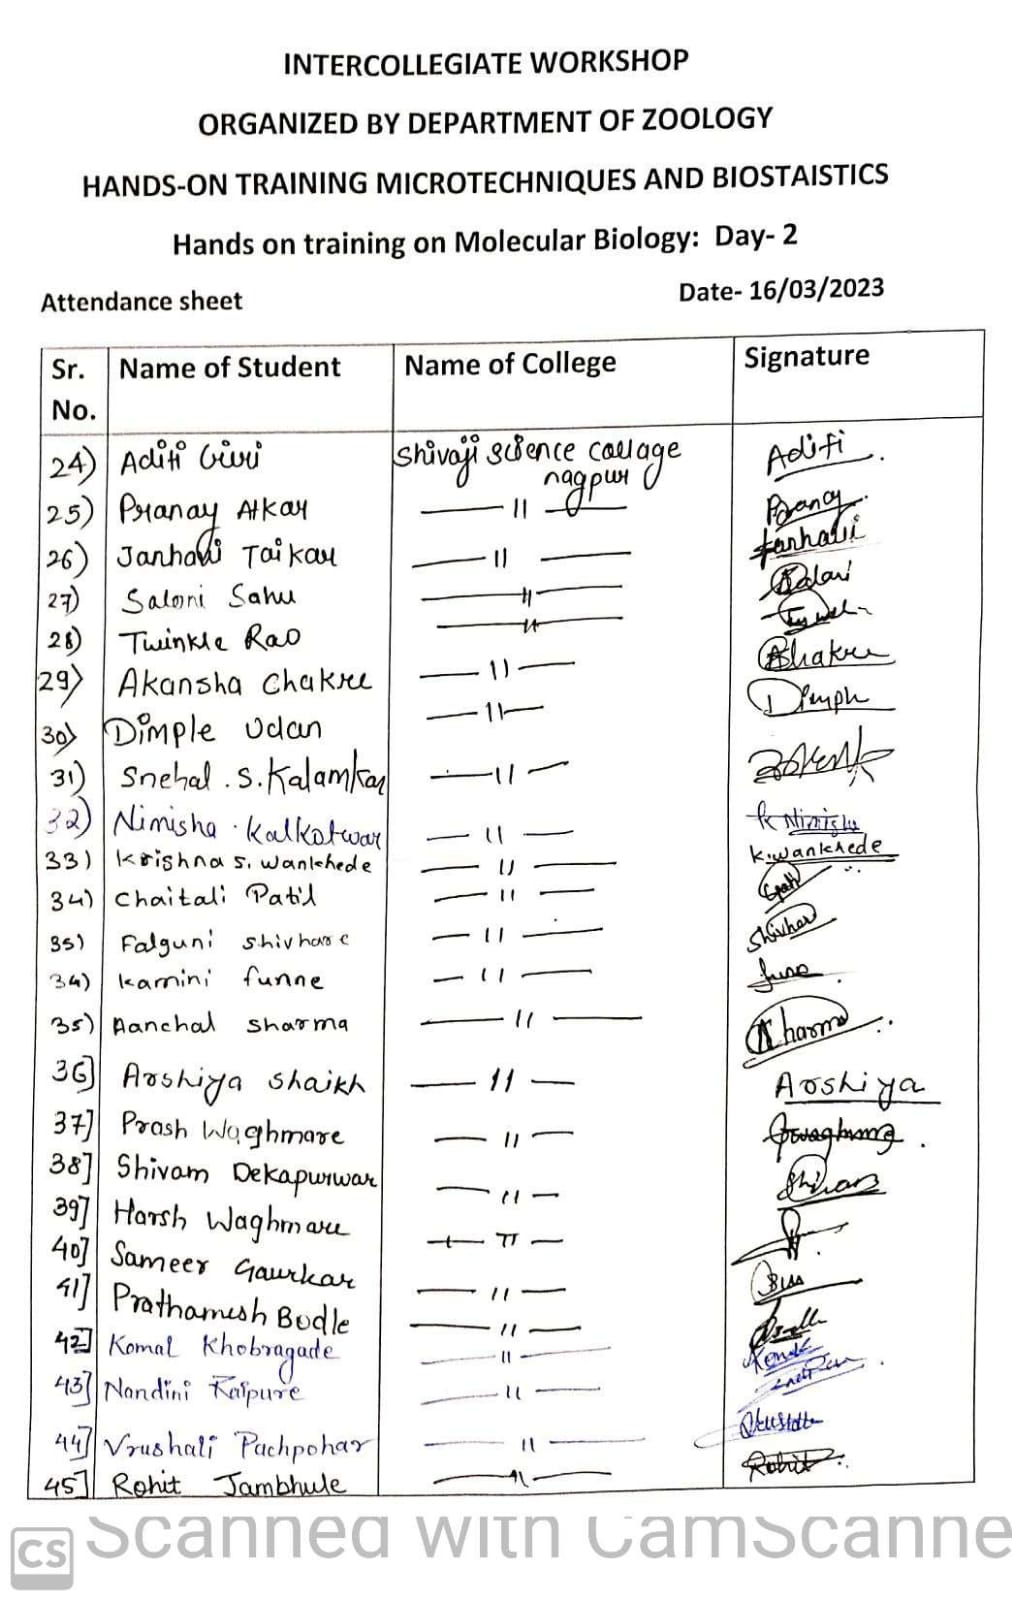 INTERCOLLEGIATE WORKSHOP
ORGANIZED BY DEPARTMENT OF ZOOLOGY
HANDS-ON TRAINING MICROTECHNIQUES AND BIOSTAISTICS
Hands on training on Molecular Biology: Day- 2
Attendance sheet Date- 16/03/2023
Sr. No. Name of Student Name of College Signature
24) Aditi Giri Shivaji science collage nagpur Aditi
25) Pranay Atkar — 11 — Pranay
26) Janhavi Taikar — 11 — Janhavi
27) Saloni Sahu — 11 —
28) Twinkle Rao — 11 —
29) Akansha Chakre — 11 — Chakre
30) Dimple Udan — 11 — Dimple
31) Snehal . S. Kalamkar — 11 —
32) Nimisha . Kalkotwar — 11 — K Nimisha
33) Krishna S. Wankhede — 11 — K.wankhede
34) Chaitali Patil — 11 —
35) Falguni Shivhare — 11 — Shivhar
34) Kamini funne — 11 —
35) Aanchal Sharma — 11 — Sharma
36] Arshiya Shaikh — 11 — Arshiya
37] Prash Waghmare — 11 —
38] Shivam Dekapurwar — 11 — Shivam
39] Harsh Waghmare — 11 —
40] Sameer Gaurkar — 11 —
41] Prathamesh Bodle — 11 —
42] Komal Khobragade — 11 —
43] Nandini Raipure — 11 —
44] Vrushali Pachpohar — 11 —
45] Rohit Jambhule — 11 — Rohit
CS Scanned with CamScanne